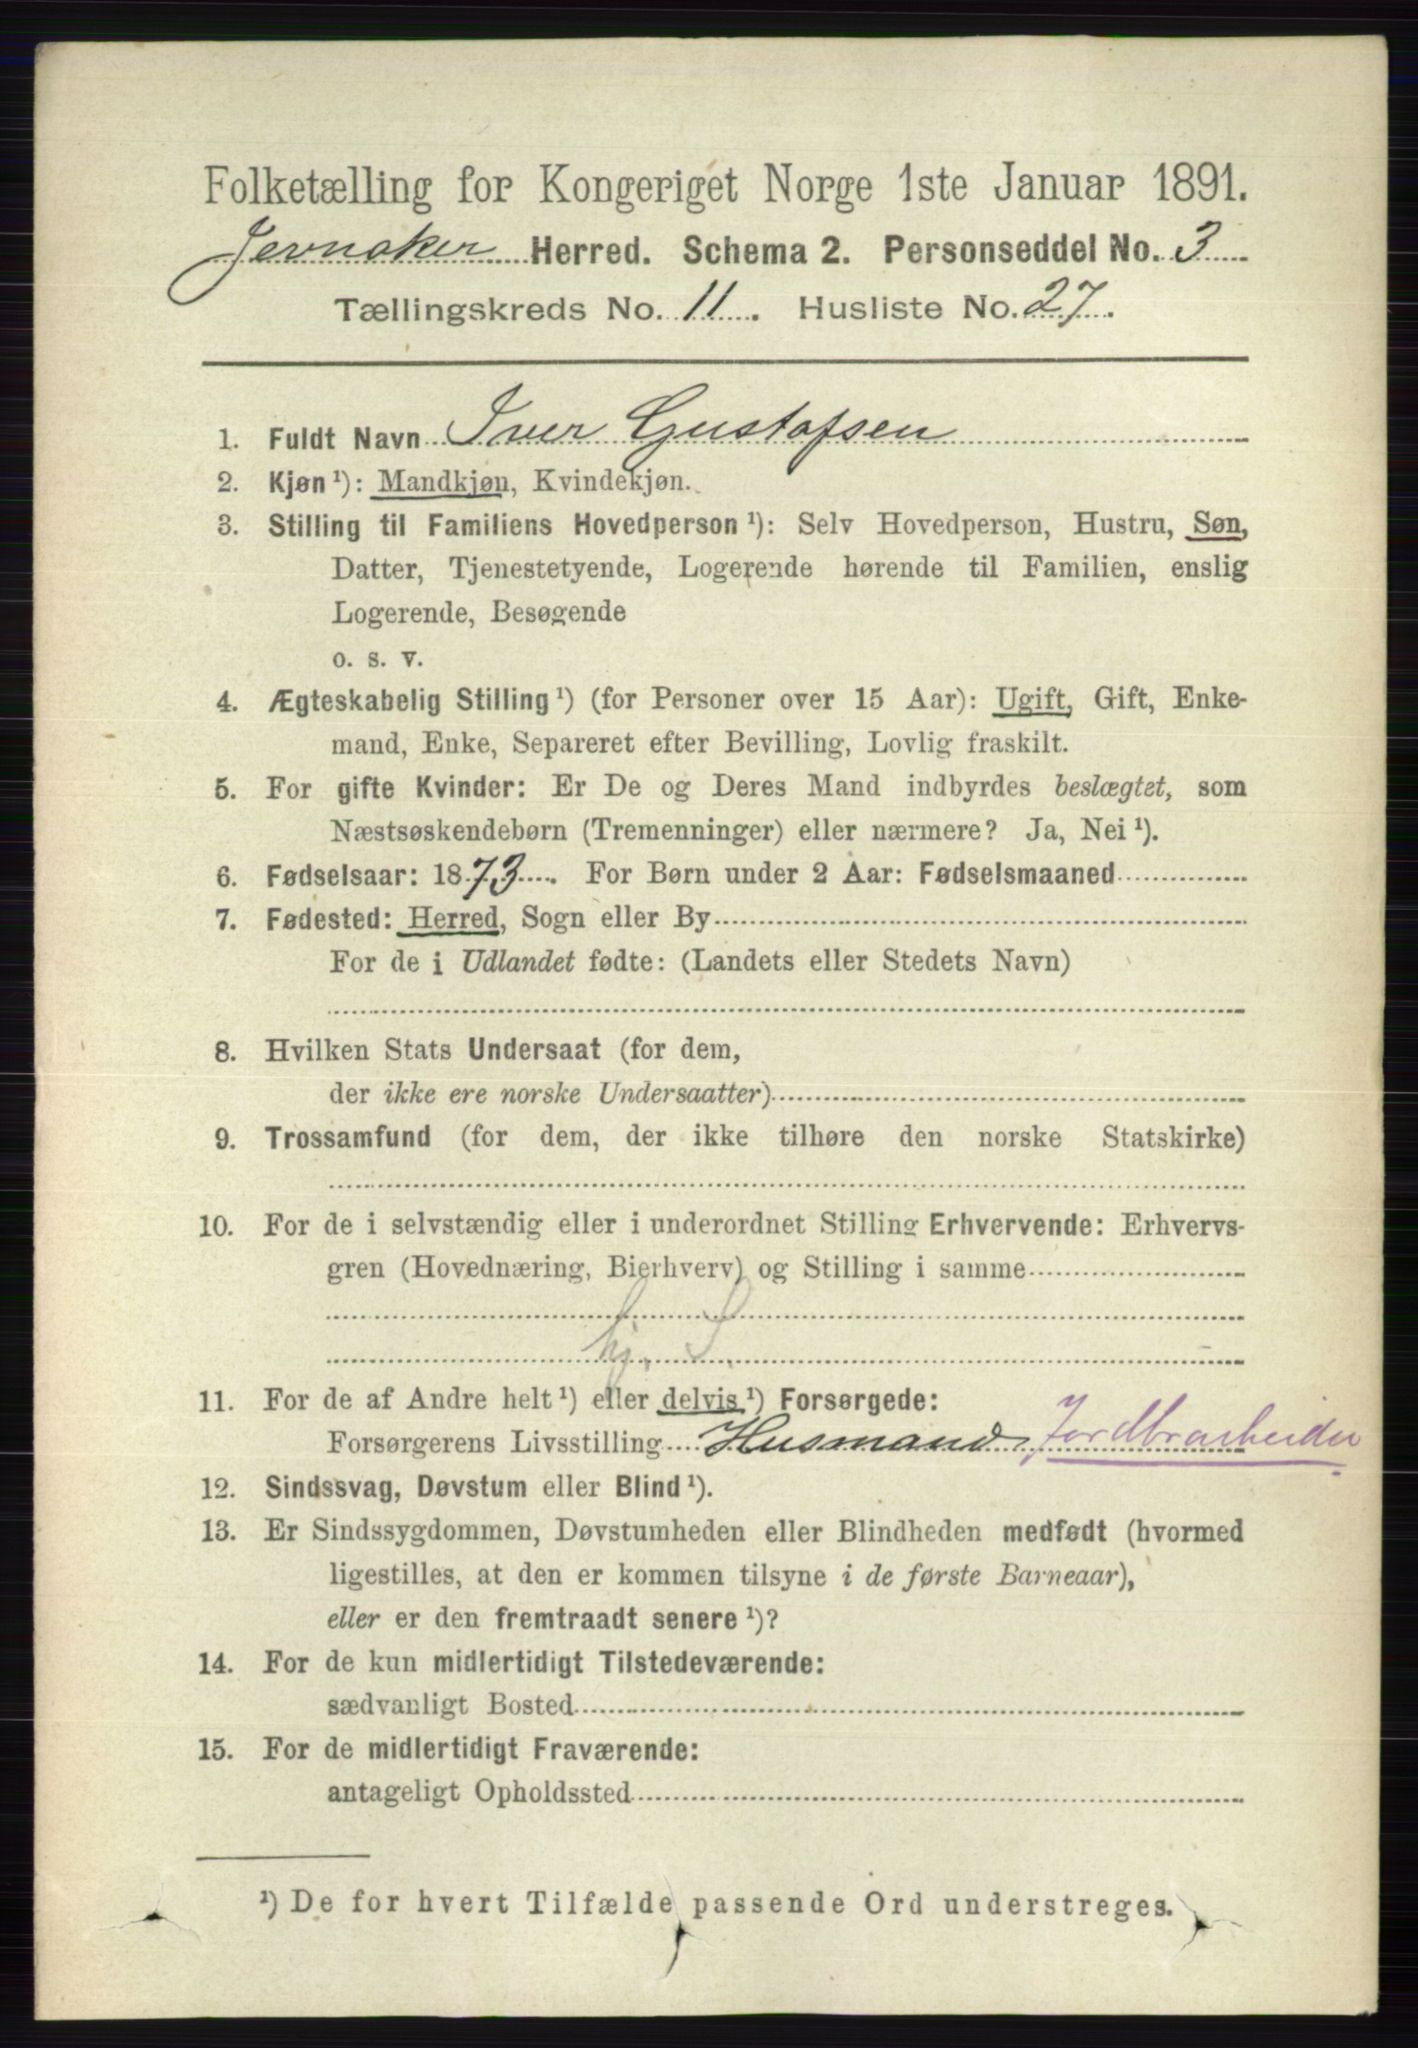 Folketælling for Kongeriget Norge 1ste Januar 1891.
Jevnaker Herred. Schema 2. Personseddel No. 3
Tællingskreds No. 11. Husliste No. 27.
1. Fuldt Navn Iver Gustafsen
2. Kjøn ¹): Mandkjøn, Kvindekjøn.
3. Stilling til Familiens Hovedperson ¹): Selv Hovedperson, Hustru, Søn,
Datter, Tjenestetyende, Logerende hørende til Familien, enslig
Logerende, Besøgende
o. s. v.
4. Ægteskabelig Stilling ¹) (for Personer over 15 Aar): Ugift, Gift, Enke-
mand, Enke, Separeret efter Bevilling, Lovlig fraskilt.
5. For gifte Kvinder: Er De og Deres Mand indbyrdes beslægtet, som
Næstsøskendebørn (Tremenninger) eller nærmere? Ja, Nei ¹).
6. Fødselsaar: 1873. For Børn under 2 Aar: Fødselsmaaned
7. Fødested: Herred, Sogn eller By
For de i Udlandet fødte: (Landets eller Stedets Navn)
8. Hvilken Stats Undersaat (for dem,
der ikke ere norske Undersaatter)
9. Trossamfund (for dem, der ikke tilhøre den norske Statskirke)
10. For de i selvstændig eller i underordnet Stilling Erhvervende: Erhvervs-
gren (Hovednæring, Bierhverv) og Stilling i samme
11. For de af Andre helt ¹) eller delvis ¹) Forsørgede:
Forsørgerens Livsstilling Husmand, Jordbrarbeider
12. Sindssvag, Døvstum eller Blind ¹).
13. Er Sindssygdommen, Døvstumheden eller Blindheden medfødt (hvormed
ligestilles, at den er kommen tilsyne i de første Barneaar),
eller er den fremtraadt senere ¹)?
14. For de kun midlertidigt Tilstedeværende:
sædvanligt Bosted
15. For de midlertidigt Fraværende:
antageligt Opholdssted
¹) De for hvert Tilfælde passende Ord understreges.